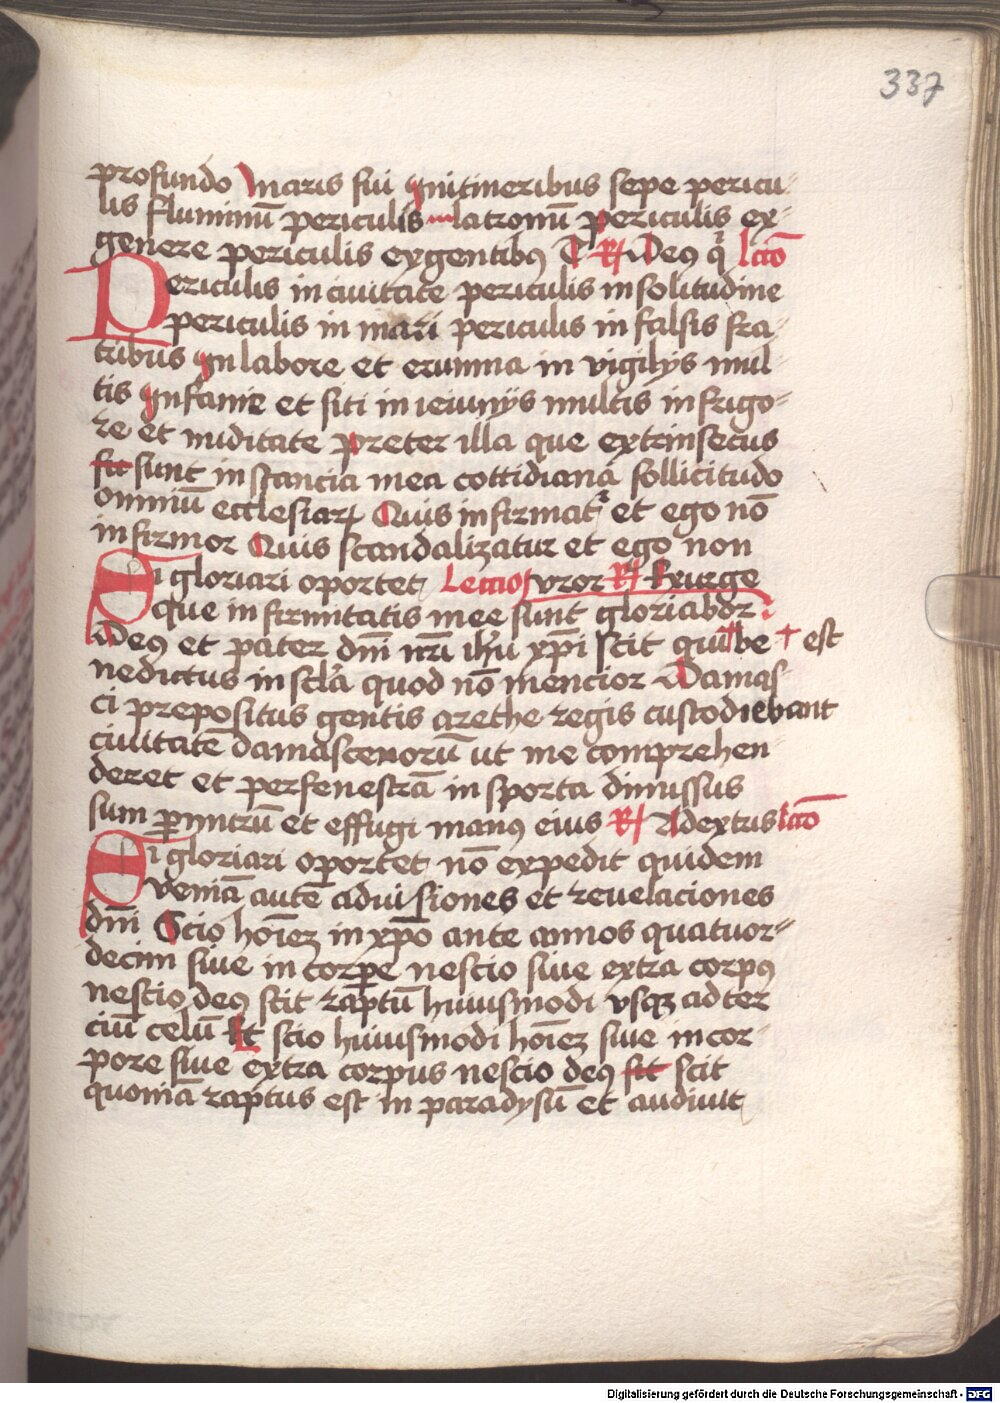 337
profundo Maris fui Initineribus sepe pericu
lis fluminū periculis latronū periculis ex
genere periculis exgentibꝰ T R Deꝰ q Lctō
Periculis in ciuitate periculis insolitudine
periculis in mari periculis in falsis fra
tribus In labore et erumna in vigilijs mul
tis Infamie et siti in ieiunijs multis infrigo
re et nuditate preter illa que extrinsecus
fit sunt instancia mea cottidiana sollicitudo
omniū ecclesiarꝝ Quis infirmatr et ego nō
infirmor Quis scandalizatur et ego non
Si gloriari oportet Leccio vror R Exurge
que infirmitatis mee sunt gloriabor
Deꝰ et pater dn̄i nr̄i ihū xp̄i scit qui be † est
nedictus in scl̄a quod nō mencior Damas
ci prepositus gentis arethe regis custodiebant
ciuitatē damascenorū ut me comprehen
deret et perfenestrā in sporta dimissus
sum p̲murū et effugi manꝰ eius R Adextus lctō
Si gloriari oportet nō expedit quidem
veniā autē aduisiones et reuelaciones
dn̄i Scio hoīeꝫ in xp̄o ante annos quatuor
decim siue in corꝑe nestio siue extra corpꝰ
nestio deꝰ scit raptū huiusmodi vsqꝫ ad ter
ciū celū Et scio huiusmodi hoīeꝫ siue in cor
pore siue extra corpus nescio deꝰ fit scit
quoniā raptus est in paradysū et audiuit
Digitalisierung gefördert durch die Deutsche Forschungsgemeinschaft - DFG